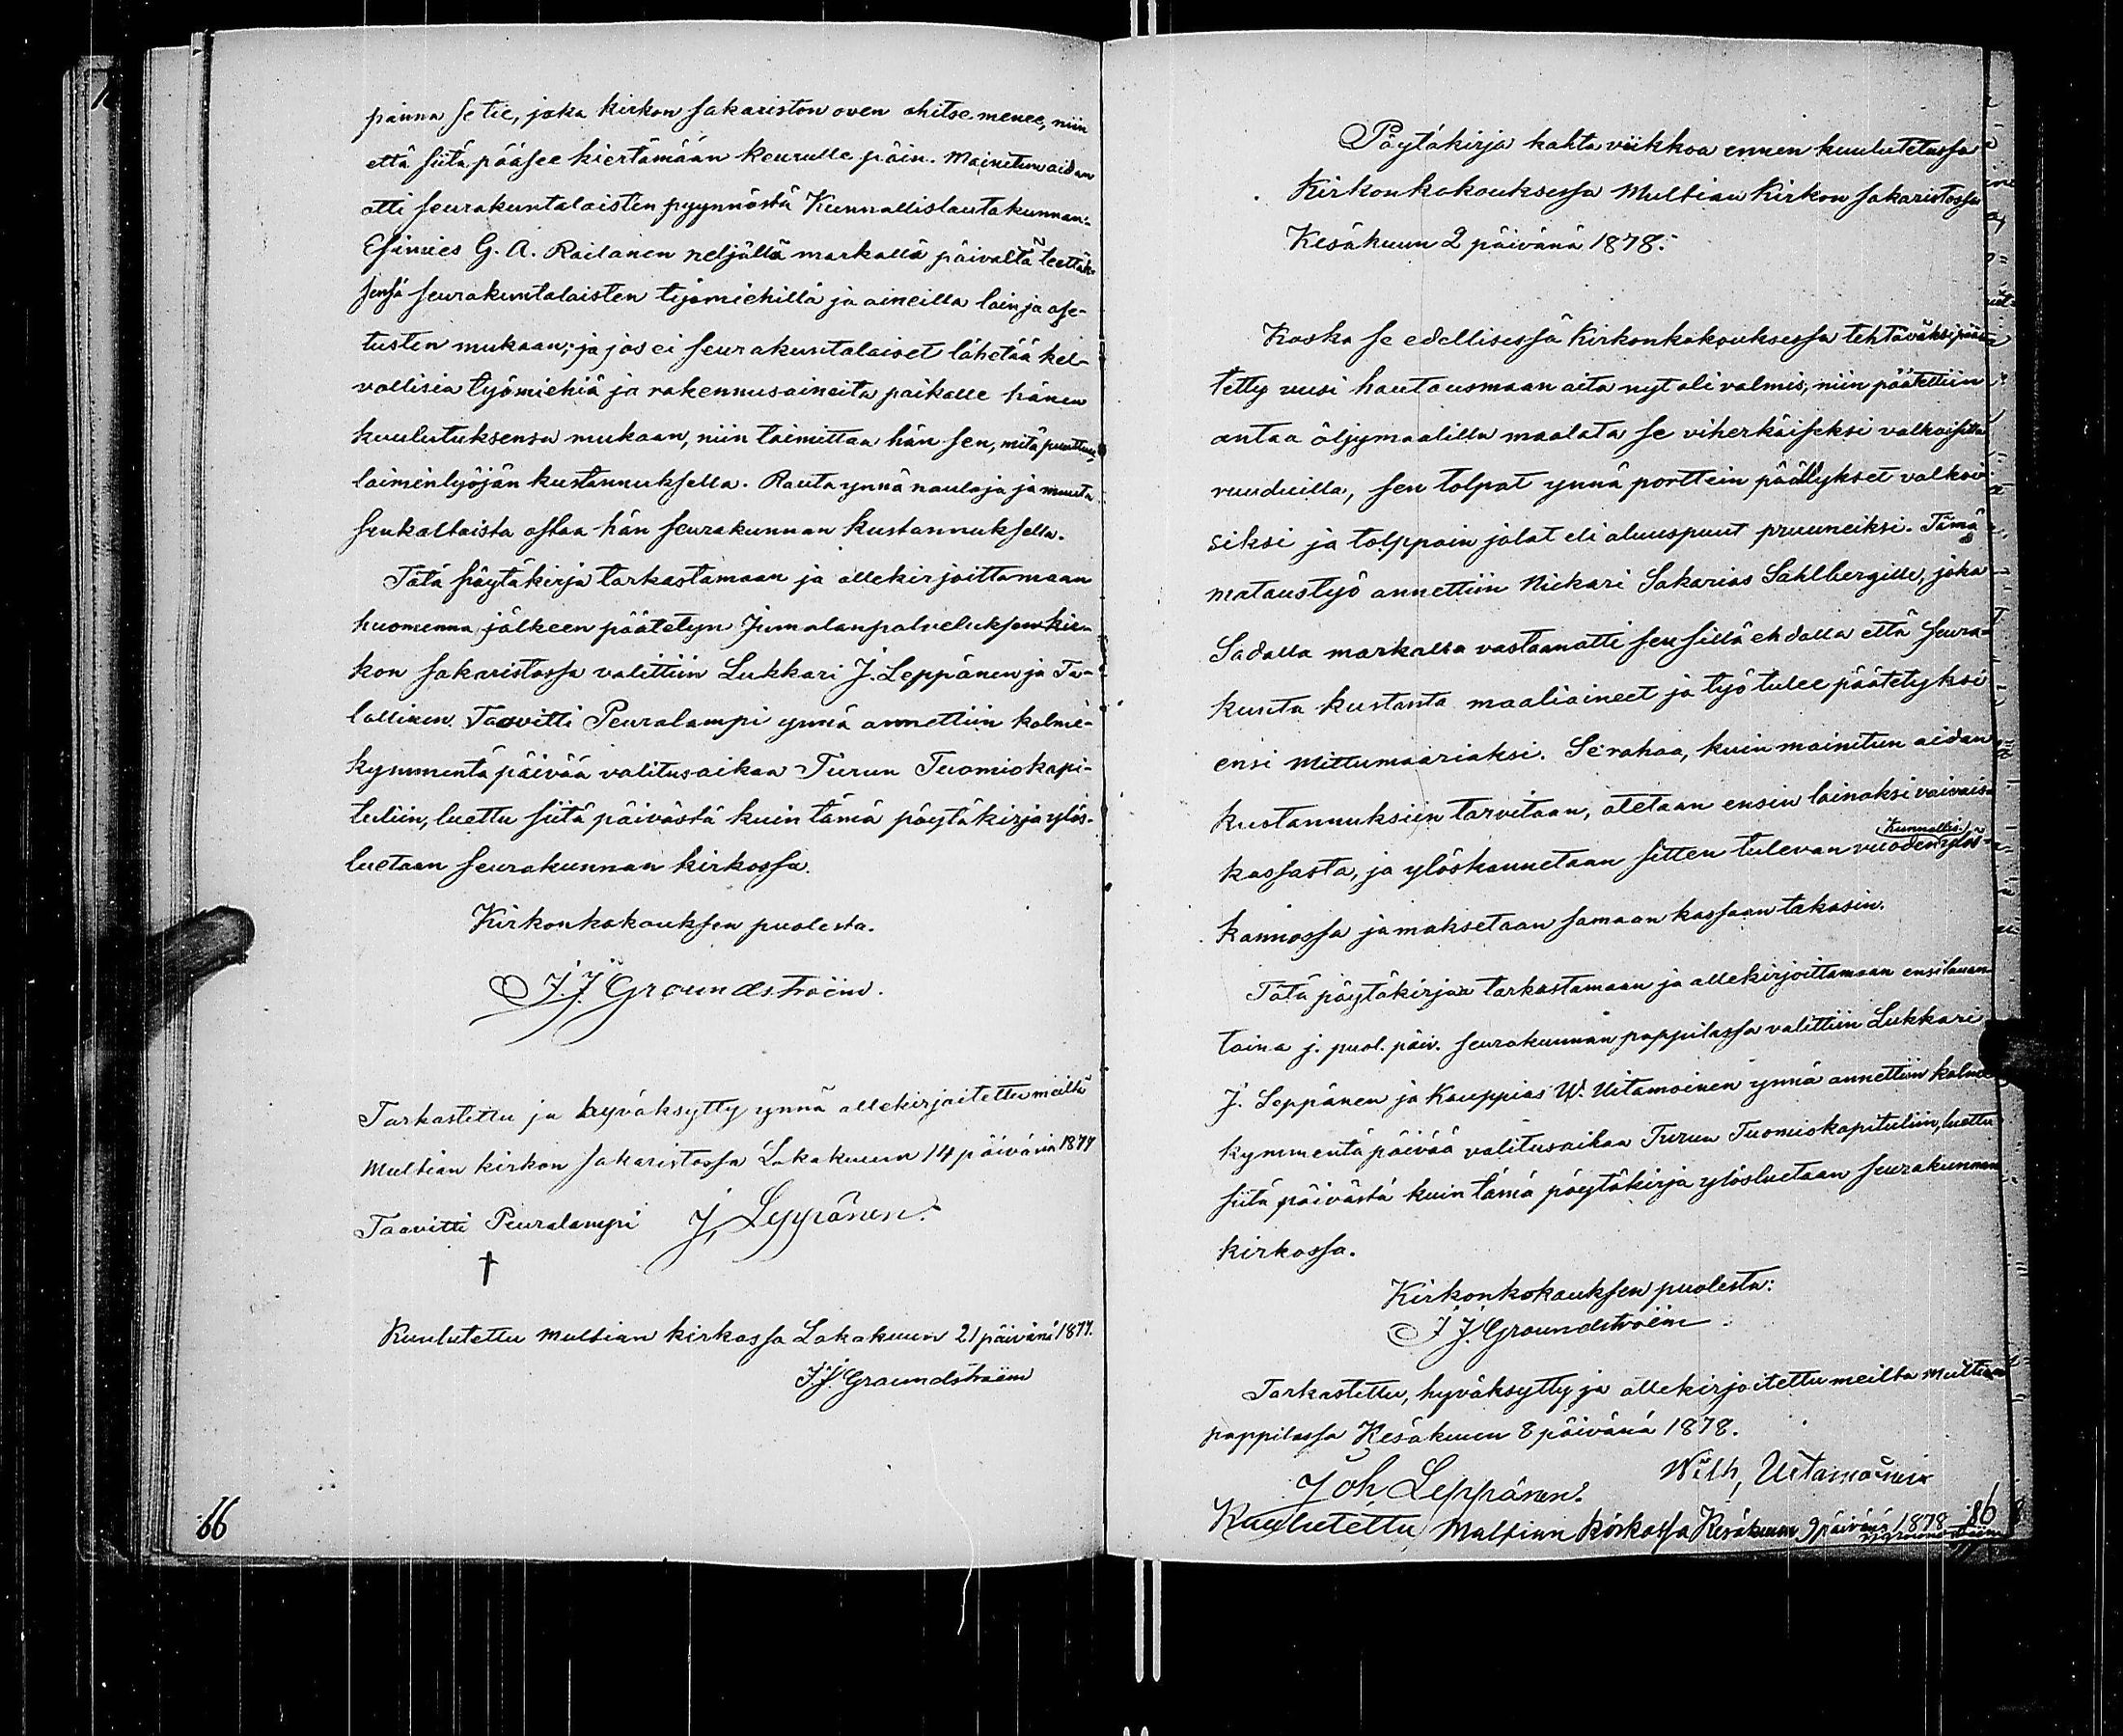 panna se tie, joka kirkon sakariston oven ohitse menee, niin
että siitä pääsee kiertämään Keurulle päin. Mainitun aidan
otti seurakuntalaisten pyynnöstä Kunnallislautakunnan-
Esimies G. A. Railanen neljällä markalla päivältä teettääk-
sensä seurakuntalaisten työmiehillä ja aineilla lain ja ase-
tusten mukaan; ja jos ei seurakuntalaiset lähetää kel-
vollisia työmiehiä ja rakennusaineita paikalle hänen
kuulutuksensa mukaan, niin toimittaa hän sen, mitä puuttuu,
laiminlyöjän kustannuksella. Rauta ynnä nauloja ja muuta
senkaltaista ostaa hän seurakunnan kustannuksella.
Tätä pöytäkirja tarkastamaan ja allekirjoittamaan
huomenna jälkeen päätetyn Jumalanpalveluksen kir-
kon sakaristossa valittiin Lukkari J. Leppänen ja Ta-
lollinen Taavitti Peuralampi ynnä annettiin kolme-
kymmentä päivää valitusaikaa Turun Tuomiokapi-
tuliin, luettu siitä päivästä kuin tämä pöytäkirja ylös-
luetaan seurakunnan kirkossa.
Kirkonkokouksen puolesta.
J. J. Groundstroëm.
Tarkastettu ja hyväksytty ynnä allekirjoitettu meiltä
Multian kirkon sakaristossa Lokakuun 14 päivänä 1877
Taavitti Peuralampi J, Leppänen.
†
Kuulutettu Multian kirkossa Lokakuun 21 päivänä 1877.
J. J. Groundstroëm
66
Pöytäkirja kahta viikkoa ennen kuulutetussa
Kirkonkokouksessa Multian Kirkon sakaristossa
Kesäkuun 2 päivänä 1878.
Koska se edellisessä Kirkonkokouksessa tehtäväksi päätä
tetty uusi hautausmaan aita nyt oli valmis, niin päätettiin
antaa öljymaalilla maalata se viherkäiseksi valkoisilla
ruuduilla, sen tolpat ynnä porttein päällykset valkoi
siksi ja tolppain jalat eli aluuspuut pruuneiksi. Tämä
maalaustyö annettiin Nickari Sakarias Sahlbergille, joka
Sadalla markalla vastaanotti sen sillä ehdolla että seura-
kunta kustanta maaliaineet ja työ tulee päätetyksi
ensi Mittumaariaksi. Se rahaa, kuin mainitun aidan
kustannuksiin tarvitaan, otetaan ensin lainaksi vaivais-
kassasta, ja ylöskannetaan sitten tulevan vuoden Kunnallis. ylös-
kannossa ja maksetaan samaan kassaan takasin.
Tätä pöytäkirjaa tarkastamaan ja allekirjoittamaan ensi lauan-
taina j. puol. päiv. seurakunnan pappilassa valittiin Lukkari
J. Leppänen ja Kauppias W. Uitamoinen ynnä annettiin kolme
kymmentä päivää valitusaikaa Turun Tuomiokapituliin, luettu
siitä päivästä kuin tämä pöytäkirja ylösluetaan seurakunnan
kirkossa.
Kirkonkokouksen puolesta:
J. J. Groundstroëm.
Tarkastettu, hyväksytty ja allekirjoitettu meiltä Multian
pappilassa Kesäkuun 8 päivänä 1878.
Joh, Leppänen. Wilh, Uitamoinen
Kuulutettu Multian kirkossa Kesäkuun 9 päivänä 1878